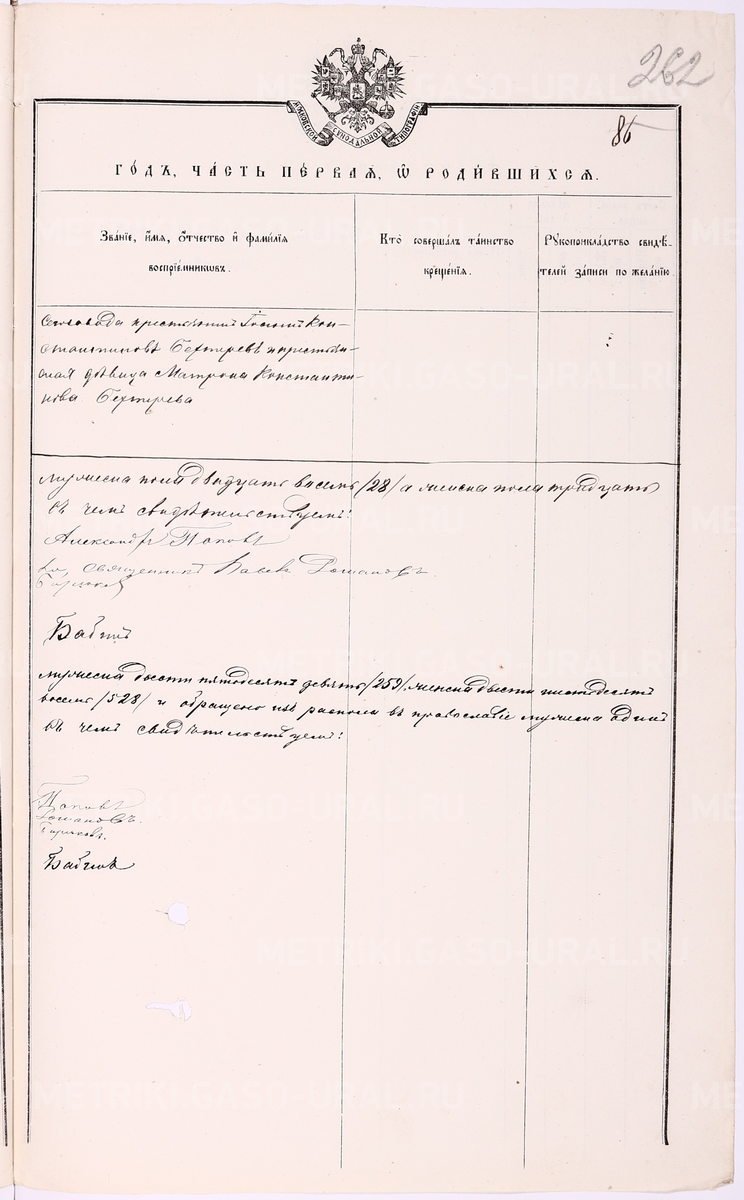 262
МОСКОВСКОЙ СѴНОДАЛЬНОЙ ТИПОГРАФІИ
86
ГО́ДЪ, ЧА́СТЬ ПЕ́РВАЯ, Ѡ РОДИ́ВШИХСЯ.
Зва́нїе, и́мя, ѻ́тчество и҆ фами́лїя
воспрїе́мникѡвъ.
Кто̀ соверша́лъ та́инство
креще́нїя.
Рꙋкоприкла́дство свидѣ́-
телей за́писи по жела́нїю.
крестьянинъ Кон-
стантиновъ Бехтеревъ и крестьян-
ская дѣвица Матрона Константи-
нова Бехтерева
мужеска пола двадцать восемь /28/ а женска пола тридцать
въ чемъ свидѣтельствуемъ:
Александръ Поповъ
священникъ Романовъ
мужеска двѣсти пятьдесятъ девять /259/, женска двѣсти шестьдесятъ
восемь и обращено изъ раскола въ православіе мужеска одинъ
въ чемъ свидѣтельствуемъ:
Поповъ
Романовъ.
METRIKI.GASO-URAL.RU
METRIKI.GASO-URAL.RU
METRIKI.GASO-URAL.RU